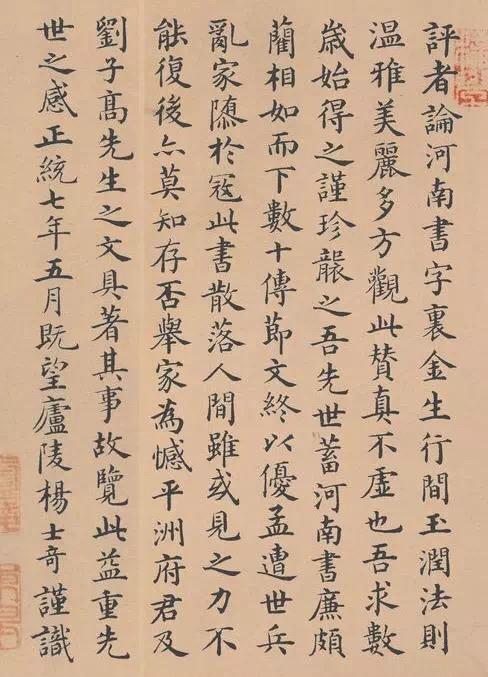 評者論河南書字裏金生行間玉潤法則
温雅美麗多方觀此賛真不虛也吾求數
歳始得之謹珍襲之吾先世蓄河南書廉頗
藺相如而下數十傳節文終以優孟遭世兵
亂家隊於冦此書散落人間雖或見之力不
能復後亦莫知存否舉家為憾平洲府君及
劉子髙先生之文具著其事故覽此益重先
世之感正統七年五月既望廬陵楊士竒謹識